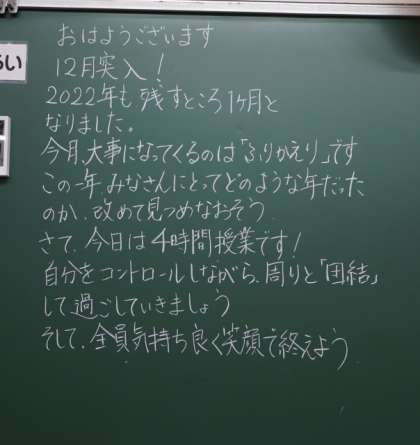 おはようございます
12月突入!
らい
2022年も残すところ1ヶ月と
なりました。
今月、大事になってくるのは「ふりかえり」です
この一年、みなさんにとってどのような年だった
のか、改めて見つめなおそう
さて、今日は4時間授業です!
自分をコントロールしながら、周りと「団結」
して過ごしていきましょう
そして、全員気持ち良く笑顔で終えよう